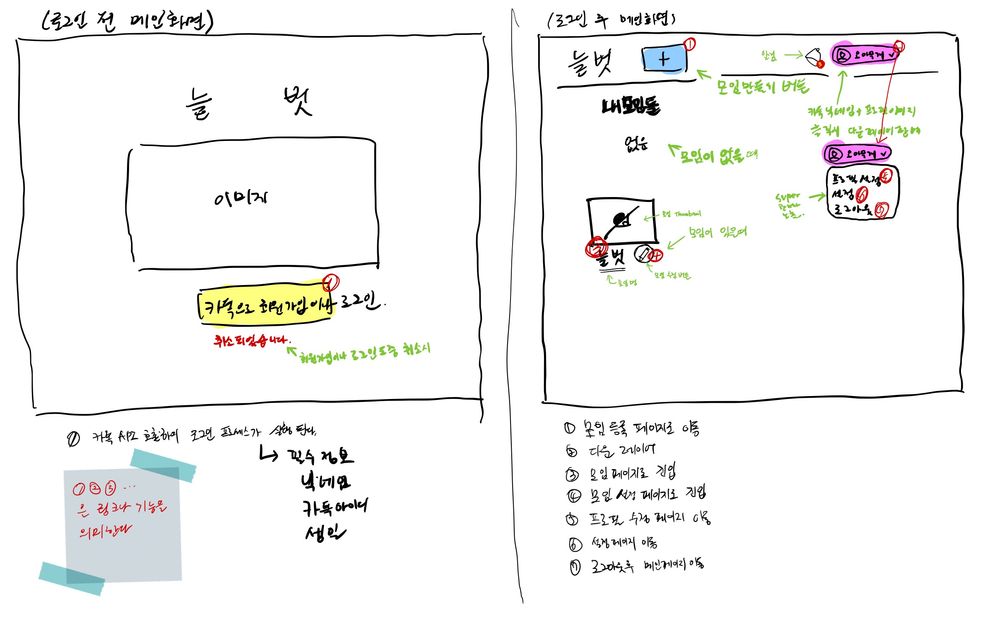 (로그인 전 메인화면)
늘 벗
이미지
카톡으로 회원가입이나 로그인.
취소되었습니다.
회원가입이나 로그인 도중 취소시
① 카톡 API 호출하여 로그인 프로세스가 실행 된다.
↳ 필수 정보
닉네임
카톡아이디
생일
① ② ③ ...
은 링크나 기능을
의미한다
(로그인 후 메인화면)
늘벗
+
①
모임만들기 버튼
알림
오아무개 ∨
②
카톡 닉네임 + 프로필이미지
클릭시 다운레이어 장착
내모임들
없음
모임이 없을때
오아무개 ∨
프로필 설정
설정 ⑥
로그아웃 ⑦
super
모임 Thumbnail
③
늘벗
④
모임이 있을때
모임명
모임 수정 버튼
① 모임 등록 페이지로 이동
② 다운 레이어
③ 모임 페이지로 진입
④ 모임 설정 페이지로 진입
⑤ 프로필 수정 페이지 이동
⑥ 설정페이지 이동
⑦ 로그아웃후 메인페이지 이동